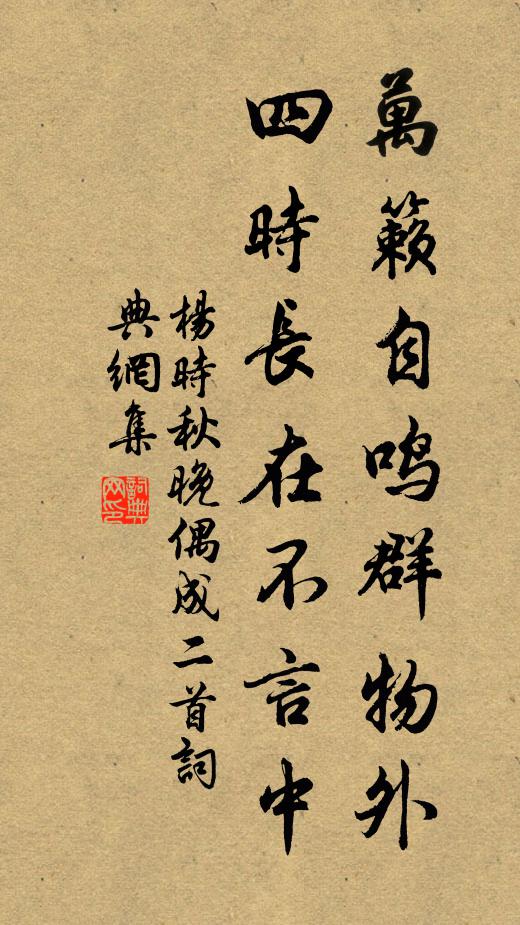 萬籟自鳴群物外
四時長在不言中
楊時秋晚偶成二首詞
典網集
詞典網印